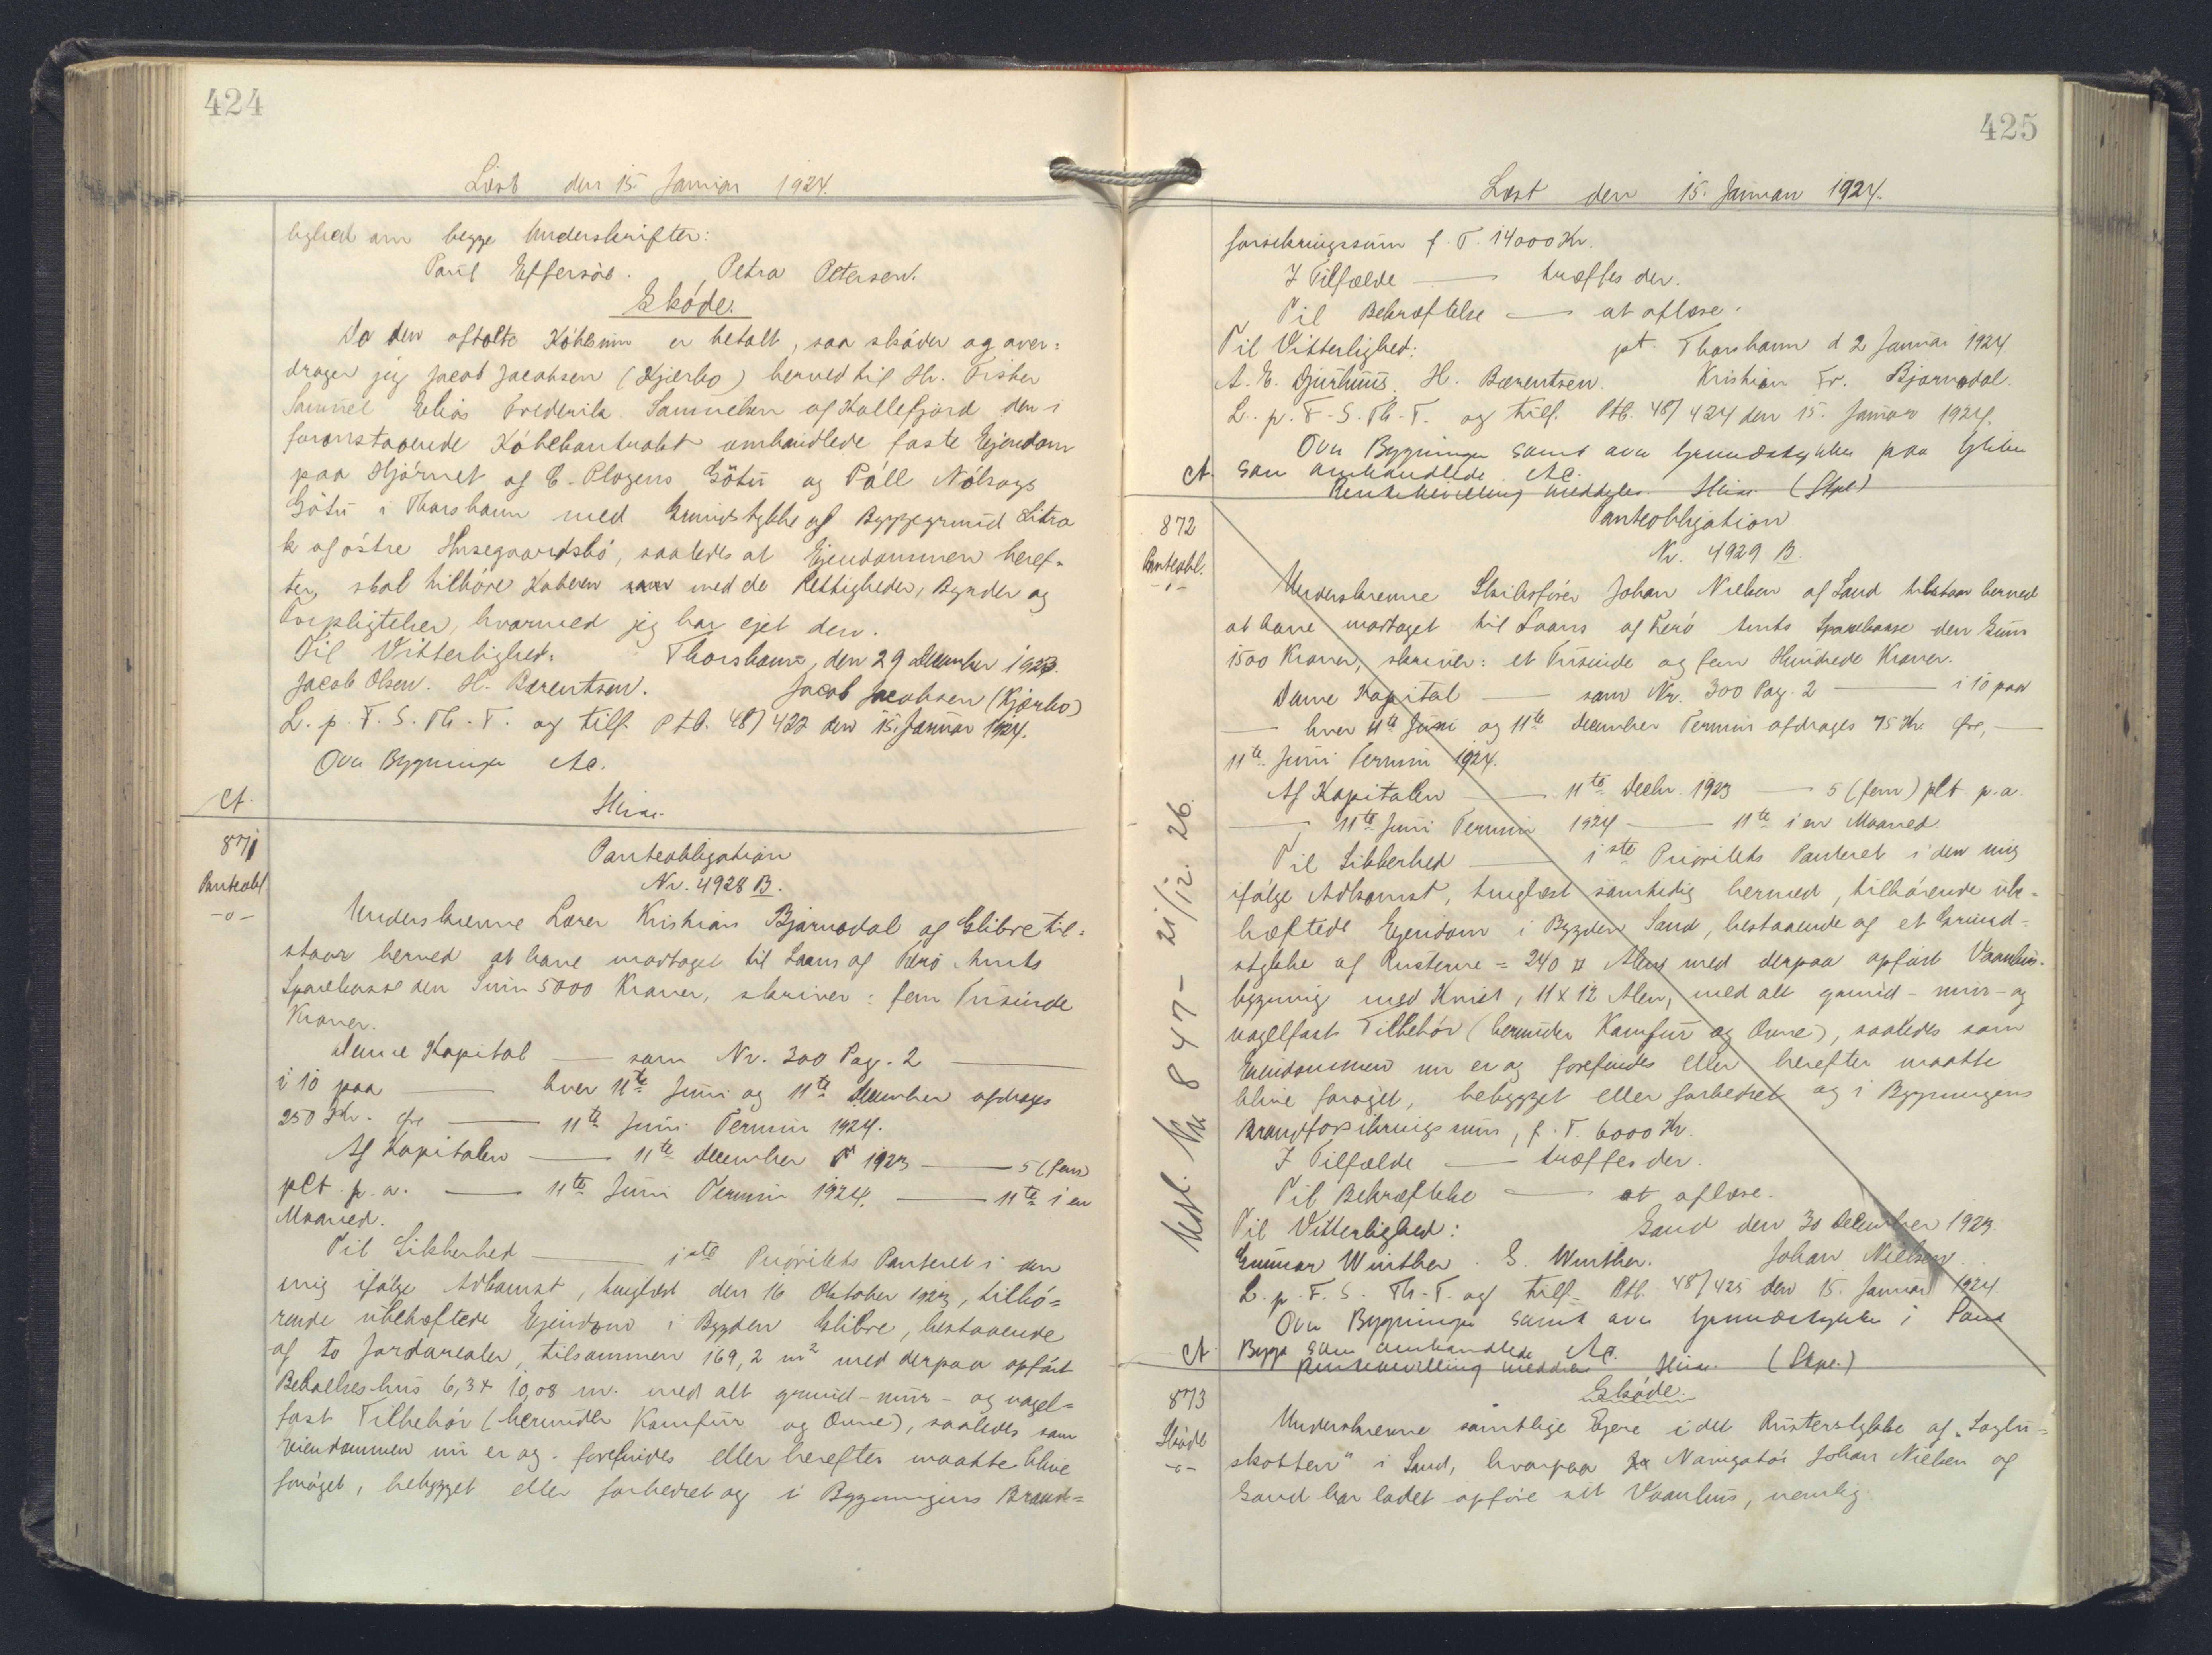 424
Læst den 15. Januar 1924.
lighed om begge Underskrifter:
Paul Effersöe. Petra Petersen.
Skóde.
Da den aftalte Kóbesum er betalt, saa skóder og over-
drager jeg Jacob Jacobsen (Kjærbo) herved til Hr. Fisker
Samuel Elias Frederik Samuelsen af Kollefjord den i
foranstaaende Kóbekontrakt omhandlede faste Ejendom
paa Hjórnet af C. Plógens Götu og Páll Nólsoys
Götu i Thorshavn med Grundstykke af Byggegrund Litra
k af óstre Husegaardsbó, saaledes at Ejendommen heref-
ter skal tilhóre Kóberen med de Rettigheder, Byrder og
Forpligtelser, hvormed jeg har ejet den.
Til Vitterlighed: Thorshavn, den 29 December 1923.
Jacob Olsen. H. Bærentsen. Jacob Jacobsen (Kjærbo)
L. p. F. S. Th. T. og tilf. Ptb. 48/422 den 15. Januar 1924.
Ova Bygninger Ac.
Ct.
871
Panteobl
-o-
Panteobligation
Nr. 4928 B.
Underskrevne Lærer Kristian Bjarnadal af Glibre til-
staar herved at have modtaget til Laans af Færó Amts
Sparekasse den Sum 5000 Kroner, skriver: fem Tusinde
Kroner.
Denne Kapital — som Nr. 300 Pag. 2 —
i 10 paa — hver 11te Juni og 11te December afdrages
250 Kr. — 11te Juni Termin 1924.
Af Kapitalen — 11te December 1923 — 5 (fem)
pCt. p. a. — 11te Juni Termin 1924. — 11te i en
Maaned.
Til Sikkerhed — 1ste Prioritets Panteret i den
mig ifólge Adkomst, tinglæst den 16 Oktober 1923, tilhó-
rende ubehæftede Ejendom i Bygden Glibre, bestaaende
af to Jordarealer, tilsammen 169,2 m2 med derpaa opfórt
Beboelseshus 6,3 x 10,08 m. med alt grund- mur- og nagel-
fast Tilbehór (herunder Komfur og Ovne), saaledes som
Eiendommen nu er og forefindes eller herefter maatte blive
foróget, bebygget eller forbedret og i Bygningens Brand-
425
Læst den 15. Januar 1924.
forsikringssum f. T. 14000 Kr.
I Tilfælde — træffes der.
Til Bekræftelse — at aflæse.
Til Vitterlighed: pt. Thorshavn d 2 Januar 1924
A. E. Djurhuus. H. Bærentsen. Kristian Fr. Bjarnadal.
L. p. F. S. Th. T. og tilf. Ptb. 48/424 den 15. Januar 1924.
Ova Bygninger samt ova Grundstykker paa Glibre
Ct. som omhandlede Ac.
Rentebevilling meddeles (Skpl)
872
Panteobl.
-o-
Panteobligation
Nr. 4929 B
Underskrevne Skibsfórer Johan Nielsen af Sand tilstaar herved
at have modtaget til Laans af Færó Amts Sparekasse den Sum
1500 Kroner, skriver: et Tusinde og fem Hundrede Kroner.
Denne Kapital — som Nr. 300 Pag. 2 — i 10 paa
— hver 11te Juni og 11te December Termin afdrages 75 Kr. —
11te Juni Termin 1924.
Af Kapitalen — 11te Decbr. 1923 — 5 (fem) pCt p. a.
— 11te Juni Termin 1924 — 11te i en Maaned.
Til Sikkerhed — 1ste Prioritets Panteret i den mig
ifólge Adkomst, tinglæst samtidig hermed, tilhórende ube-
hæftede Ejendom i Bygden Sand, bestaaende af et Grund-
stykke af Rusterne = 240 □ Alen med derpaa opfórt Vaanhus-
bygning med Kvist, 11 x 12 Alen, med alt grund- mur- og
nagelfast Tilbehór (herunder Komfur og Ovne), saaledes som
Eiendommen nu er og forefindes eller herefter maatte
blive foróget, bebygget eller forbedret og i Bygningens
Brandforsikringssum, f. T. 6000 Kr.
I Tilfælde — træffes der.
Til Bekræftelse — at aflæse.
Til Vitterlighed: Sand den 30 December 1923.
Gunnar Winther. S. Winther. Johan Nielsen.
L. p. F. S. Th. T. og tilf. Ptb. 48/425 den 15. Januar 1924
Ova Bygninger samt ova Grundstykke i Sand
Ct. Bygd som omhandlede Ac.
Rentebevilling (Skpl.)
Udsl. Nr 847 - 21/12. 26.
873
Skóde
-o-
Skóde.
Underskrevne samtlige Ejere i det Rusterstykke af
i Sand, hvorpaa Navigatór Johan Nielsen af
Sand har ladet opfóre sit Vaanhus, nemlig